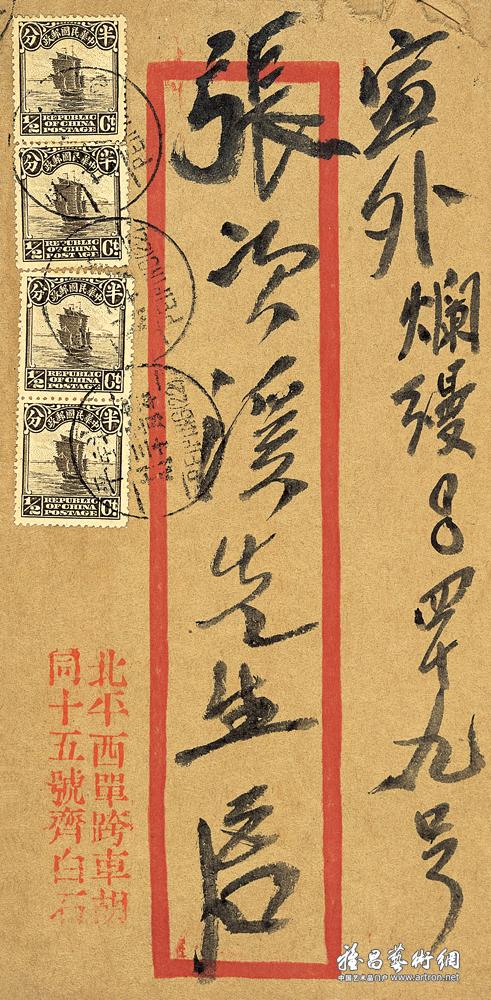 宣外爛縵四十九号
張次溪先生启
北平西單跨車胡
同十五號齊白石
中華民國郵政
半分
REPUBLIC
OF CHINA
POSTAGE
1/2 Ct.
中華民國郵政
半分
REPUBLIC
OF CHINA
POSTAGE
1/2 Ct.
中華民國郵政
半分
REPUBLIC
OF CHINA
POSTAGE
1/2 Ct.
中華民國郵政
半分
REPUBLIC
OF CHINA
POSTAGE
1/2 Ct.
雅昌藝術網
中国艺术品门户 www.artron.net